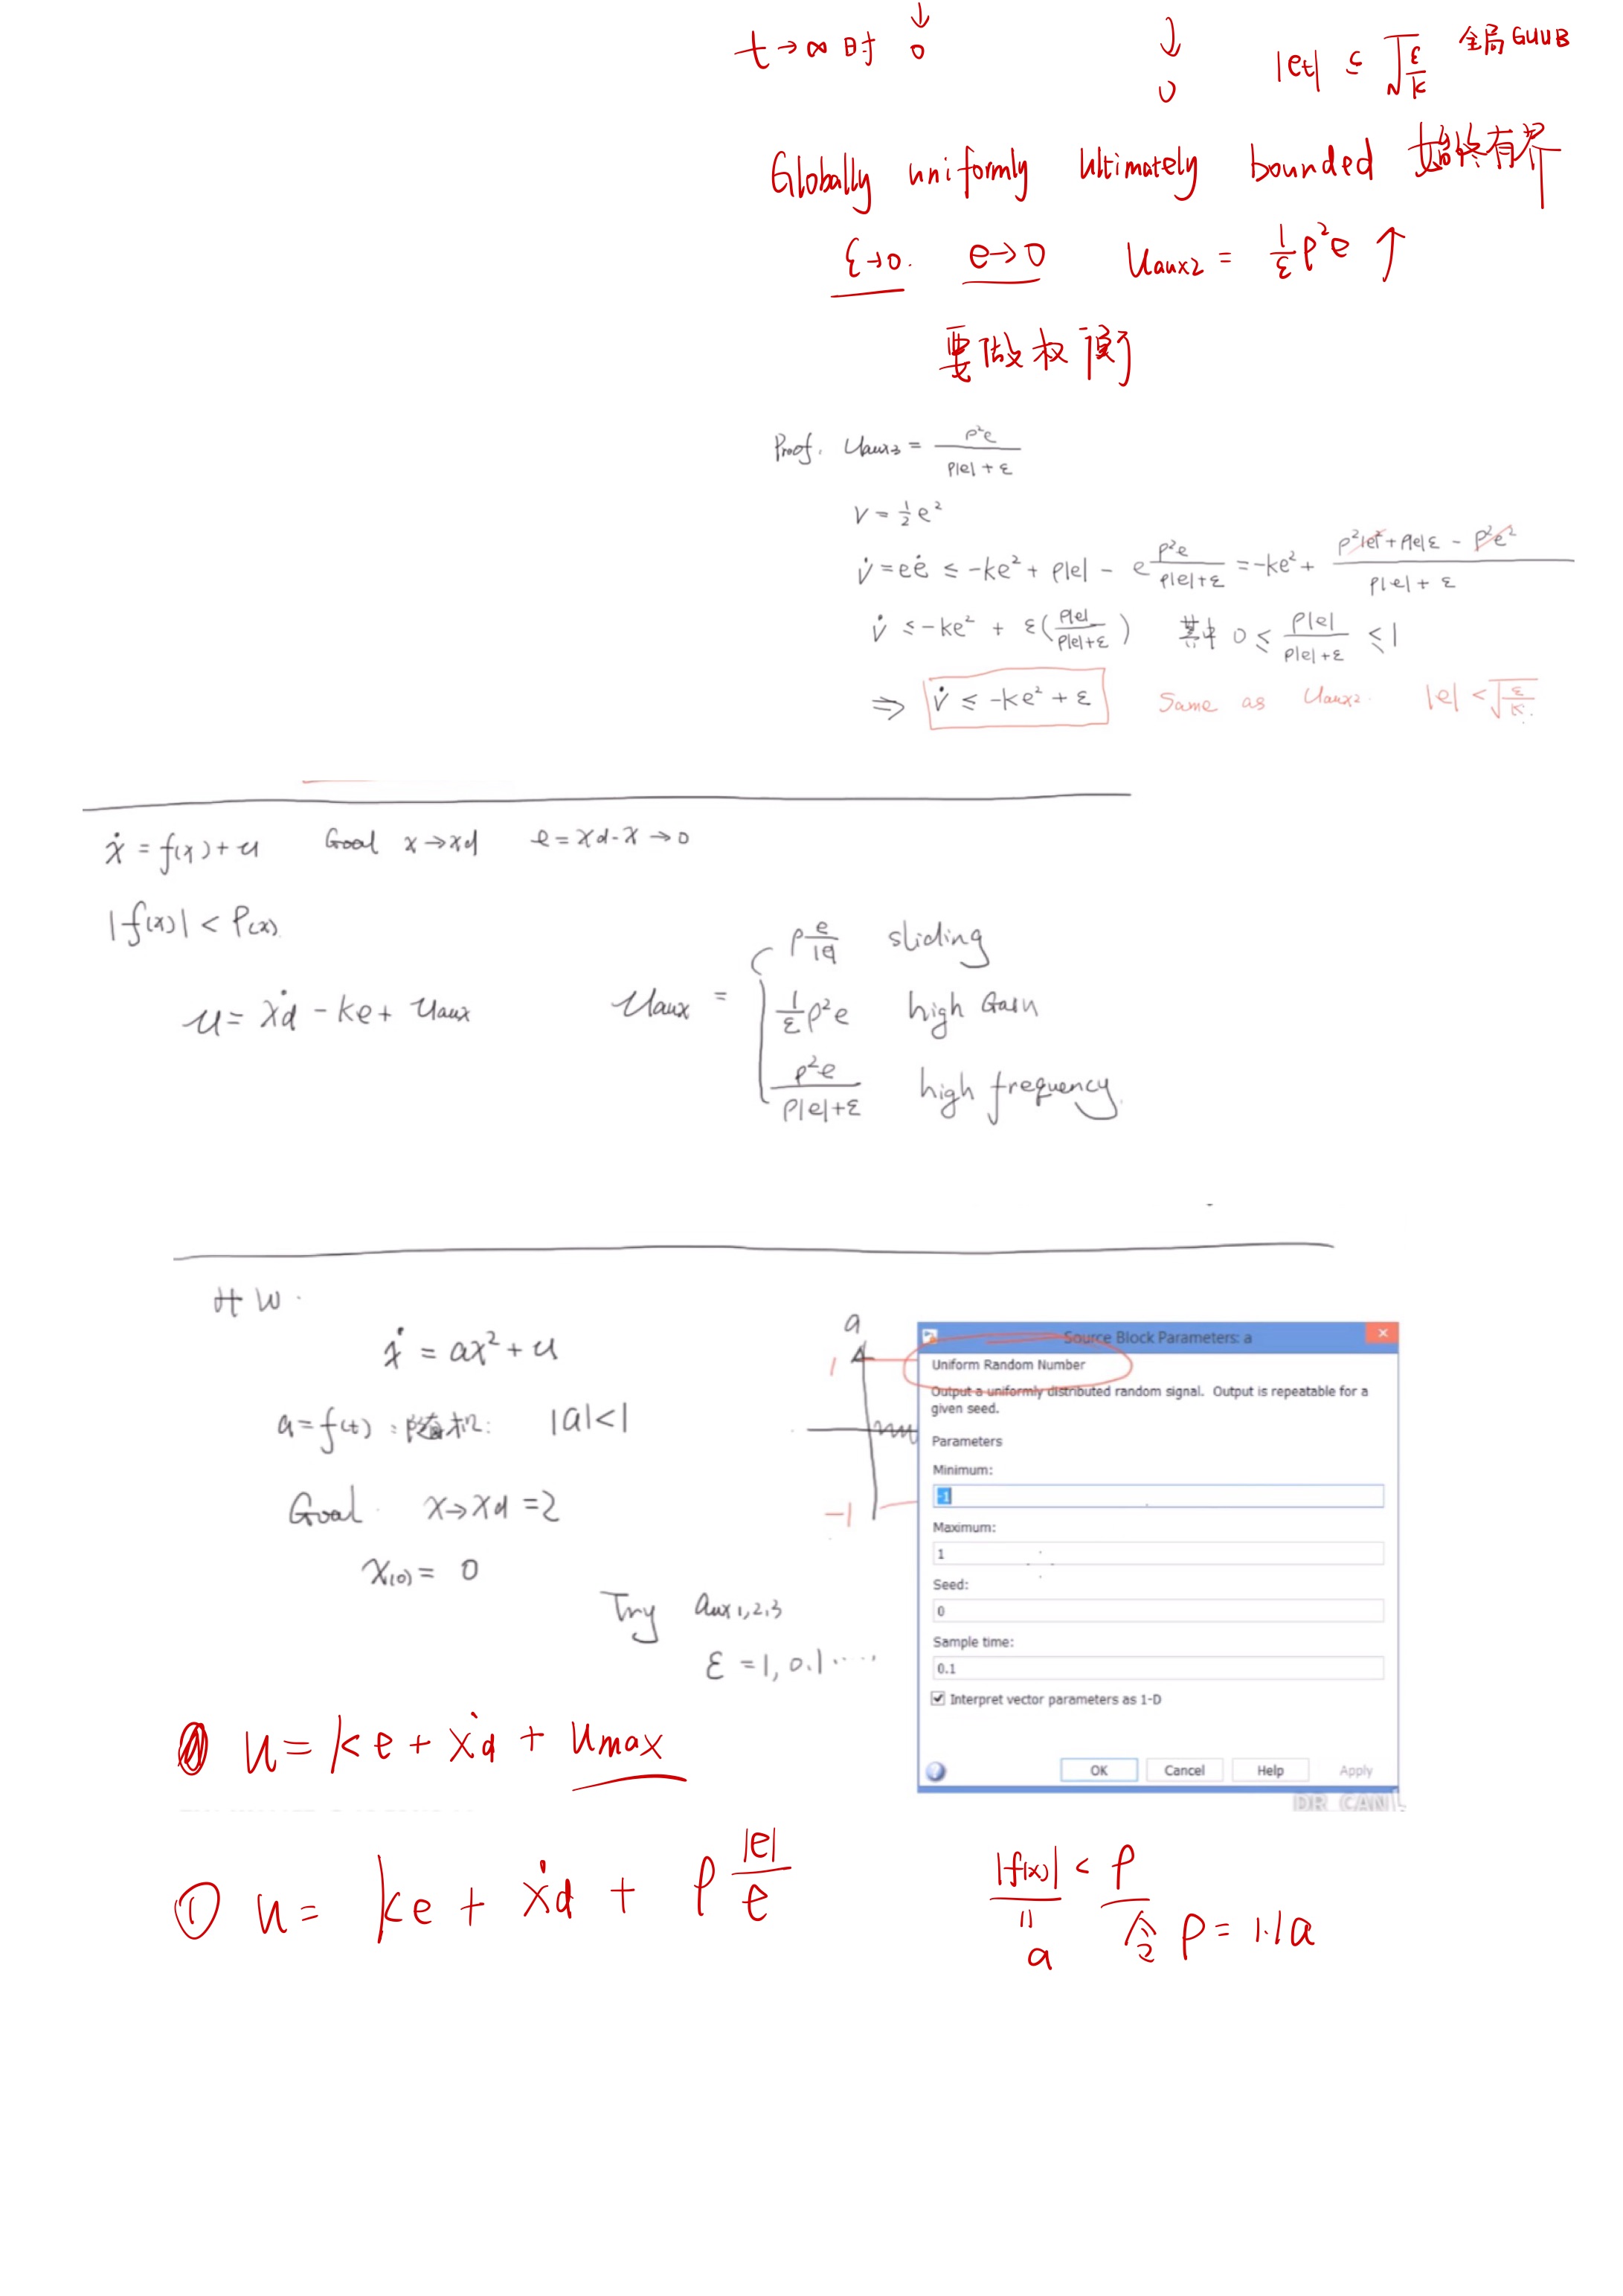 t→∞时 ↓ 0 ↓ 0 |et| ≤ √(ε/k) 全局GUUB
Globally uniformly ultimately bounded 始终有界
ε→0. e→0 Uaux2 = 1/ε ρ²e ↑
要做权衡
Proof. Uaux3 = ρ²e / (ρ|e| + ε)
V = ½e²
V̇ = eė ≤ -ke² + ρ|e| - e ρ²e/(ρ|e|+ε) = -ke² + (ρ²|e|² + ρ|e|ε - ρ²e²)/(ρ|e| + ε)
V̇ ≤ -ke² + ε(ρ|e|/(ρ|e|+ε)) 其中 0 ≤ ρ|e|/(ρ|e|+ε) ≤ 1
⇒ V̇ ≤ -ke² + ε Same as Uaux2. |e| < √(ε/k).
ẋ = f(x) + u Goal x→xd e = xd-x →0
|f(x)| < ρ(x).
u = ẋd - ke + Uaux
Uaux = { ρ e/|e| sliding
1/ε ρ²e high Gain
ρ²e/(ρ|e|+ε) high frequency.
HW.
ẋ = ax² + u
a = f(t) : 随机: |a|<1
Goal. x→xd = 2
x(0) = 0
Try aux1,2,3
ε = 1, 0.1 .....
a
1
-1
Source Block Parameters: a
Uniform Random Number
Output a uniformly distributed random signal. Output is repeatable for a
given seed.
Parameters
Minimum:
-1
Maximum:
1
Seed:
0
Sample time:
0.1
Interpret vector parameters as 1-D
OK Cancel Help Apply
DR_CAN
u = ke + ẋd + umax
① u = ke + ẋd + ρ |e|/e
|f(x)| < ρ
=
a 令 ρ = 1.1a